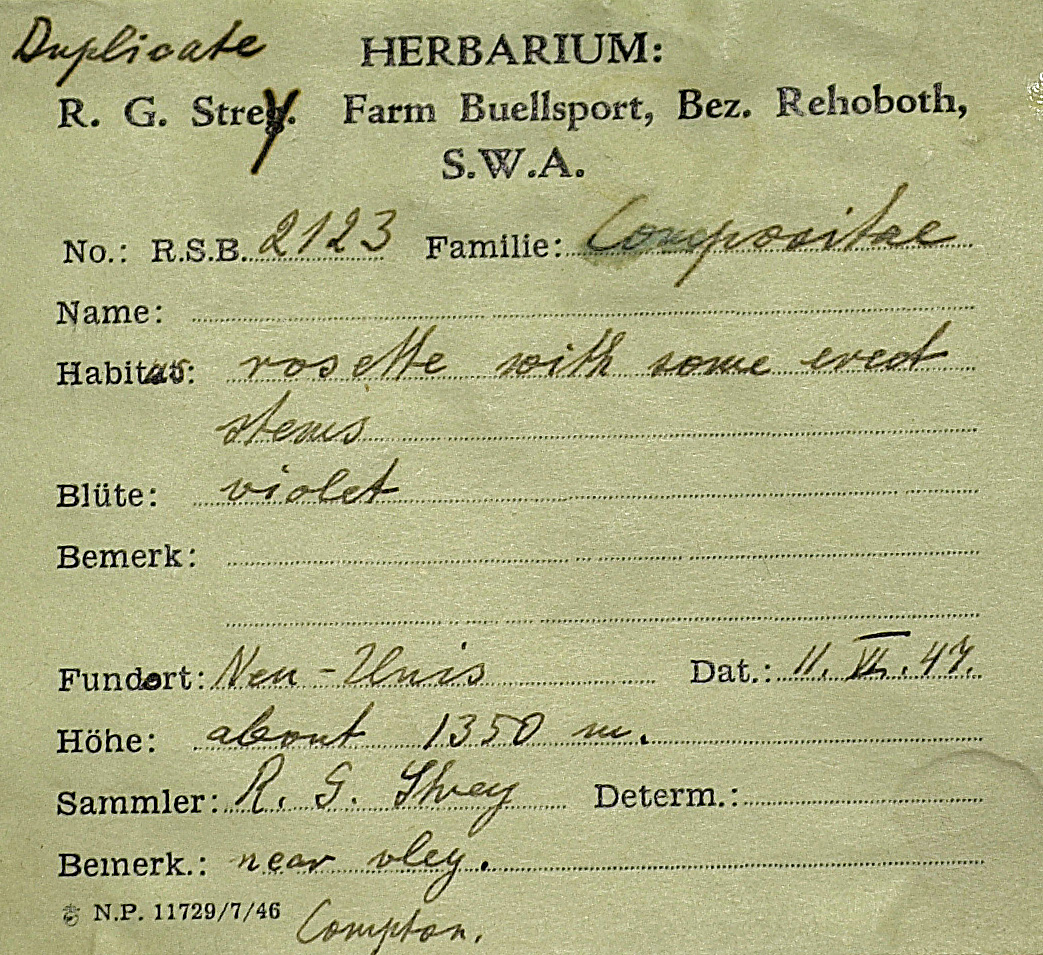 Duplicate
HERBARIUM:
R. G. Strey. Farm Buellsport, Bez. Rehoboth,
S.W.A.
No.: R.S.B. 2123 Familie: Compositae
Name:
Habitus: rosette with some erect
stems
Blüte: violet
Bemerk:
Fundort: Neu-Unis Dat.: 11. VI. 47.
Höhe: about 1350 m.
Sammler: R. G. Strey Determ.:
Bemerk.: near vley.
N.P. 11729/7/46
Compton.